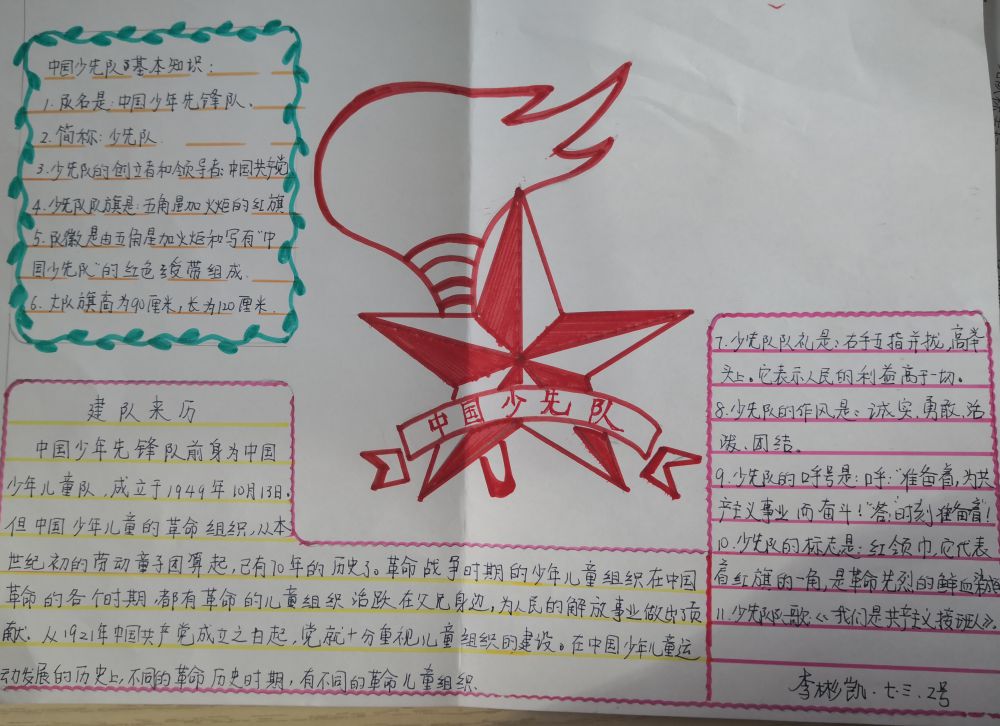 中国少先队的基本知识：
1.队名是：中国少年先锋队、
2.简称：少先队.
3.少先队的创立者和领导者：中国共产党
4.少先队队旗是：五角星加火炬的红旗
5.队徽是由五角星加火炬和写有“中
国少先队”的红色绶带组成.
6.大队旗高为90厘米，长为120厘米.
中国少先队
建队来历
中国少年先锋队前身为中国
少年儿童队，成立于1949年10月13日。
但中国少年儿童的革命组织，从本
世纪初的劳动童子团算起，已有70年的历史了。革命战争时期的少年儿童组织在中国
革命的各个时期，都有革命的儿童组织活跃在父兄身边，为人民的解放事业做出了贡
献。从1921年中国共产党成立之日起，党就十分重视儿童组织的建设。在中国少年儿童运
动发展的历史上，不同的革命历史时期，有不同的革命儿童组织.
7.少先队队礼是：右手五指并拢，高举
头上。它表示人民的利益高于一切。
8.少先队的作风是：诚实、勇敢、活
泼、团结。
9.少先队的呼号是：呼：“准备着，为共
产主义事业而奋斗！”答：“时刻准备着”！
10.少先队的标志是：红领巾，它代表
着红旗的一角，是革命先烈的鲜血染成
11.少先队队歌《我们是共产主义接班人》.
李彬凯.七.三.2号